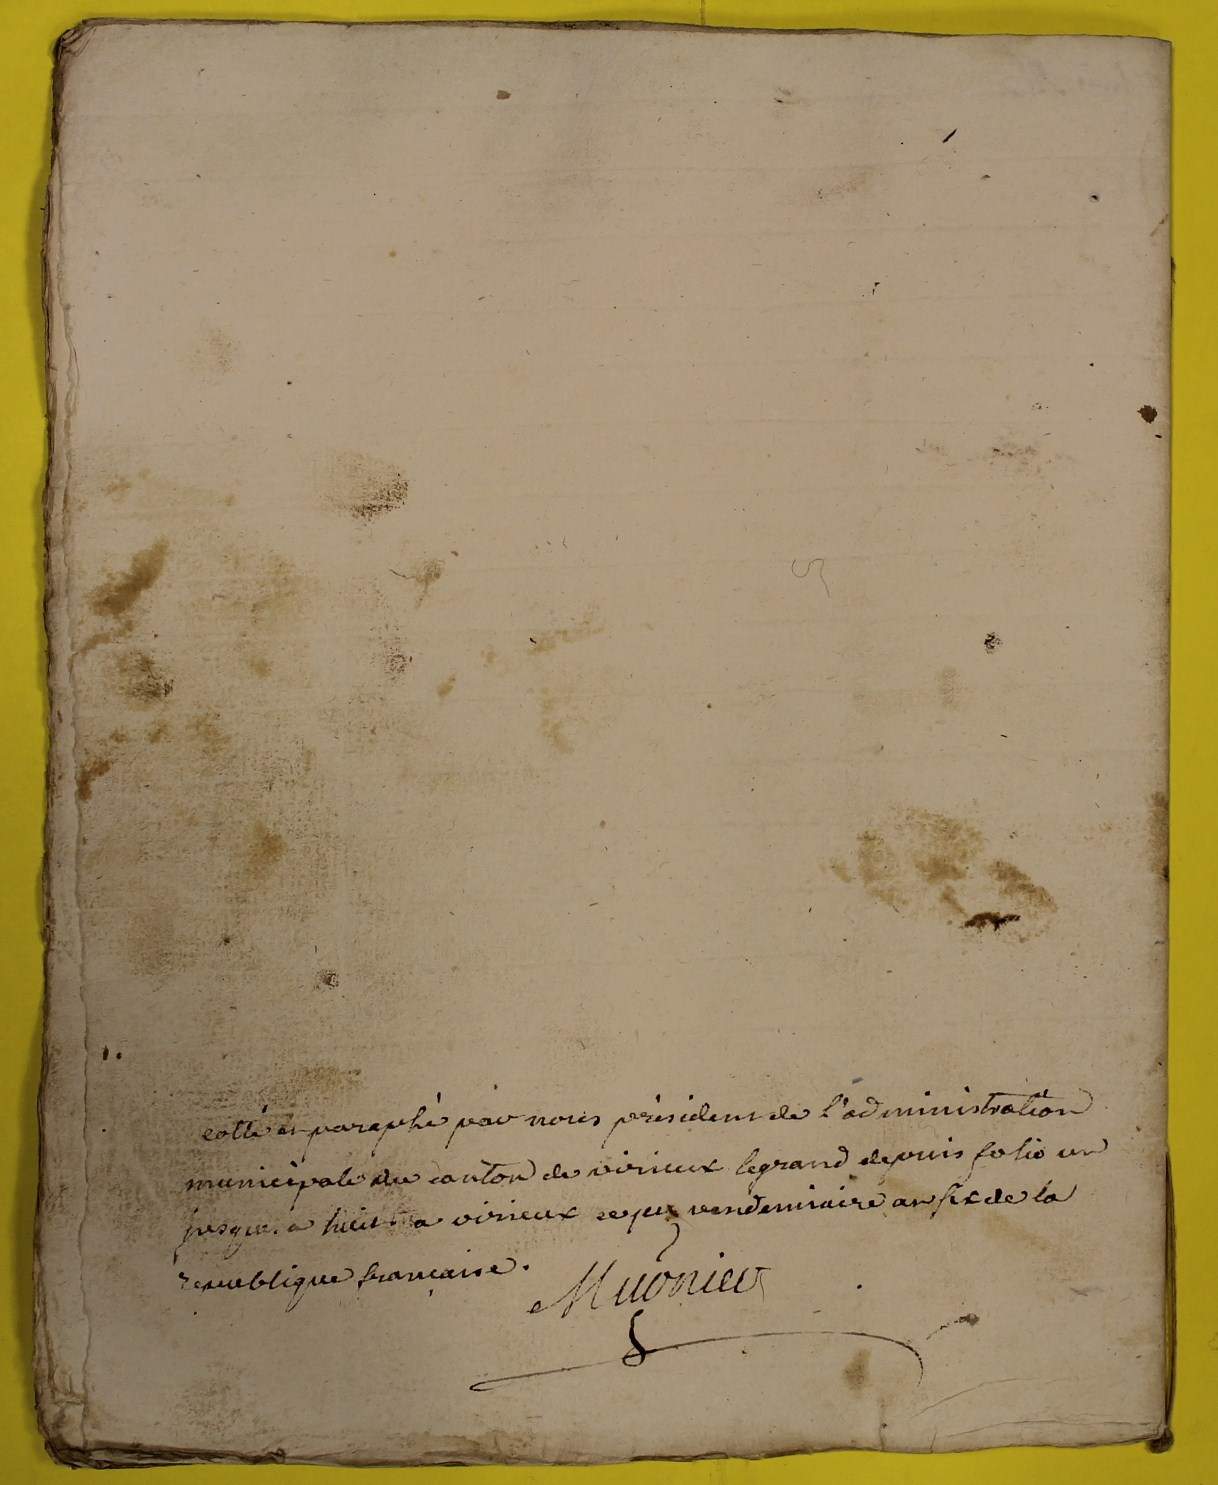 cotté et paraphé par nous président de l'administration
municipale du canton de virieux legrand depuis folio un
jusqu'a huit a virieux ce vendemiaire an six de la
republique française.